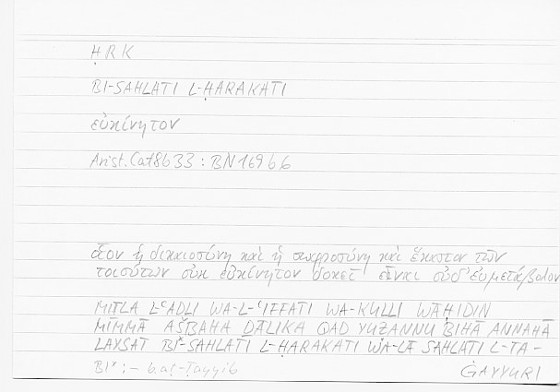 ḤRK
BI-SAHLATI L-ḤARAKATI
εὐκίνητον
Arist. Cat 8b33 : BN 169b6
οἷον ἡ δικαιοσύνη καὶ ἡ σωφροσύνη καὶ ἕκαστον τῶν
τοιούτων οὐκ εὐκίνητον δοκεῖ εἶναι οὐδ' εὐμετάβολον
MIṮLA L-ʿADLI WA-L-ʿIFFATI WA-KULLI WĀḤIDIN
MIMMĀ AŠBAHA ḎĀLIKA QAD YUẒANNU BIHĀ ANNAHĀ
LAYSAT BIˣ-SAHLATI L-ḤARAKATI WA-LĀ SAHLATI L-TA-
BIˣ : – b. aṭ-Ṭayyib ĠAYYURI